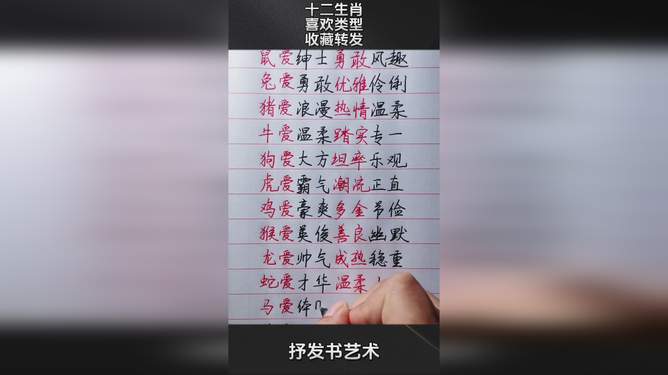 十二生肖
喜欢类型
收藏转发
鼠爱绅士勇敢风趣
兔爱勇敢优雅伶俐
猪爱浪漫热情温柔
牛爱温柔踏实专一
狗爱大方坦率乐观
虎爱霸气潮流正直
鸡爱豪爽多金节俭
猴爱英俊善良幽默
龙爱帅气成熟稳重
蛇爱才华温柔
马爱
抒发书艺术